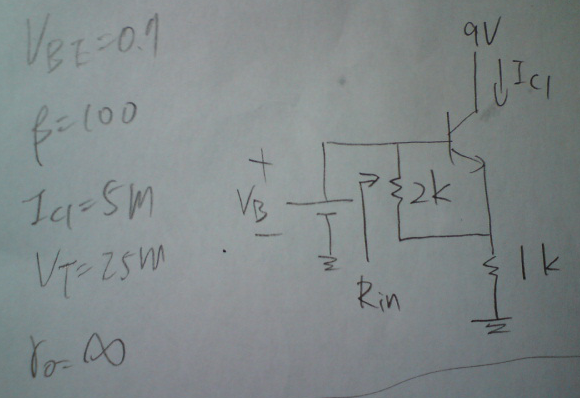 V_BE=0.7
β=100
I_C1=5m
V_T=25m
r_o=∞
9V
I_C1
+
V_B
−
2k
R_in
1k